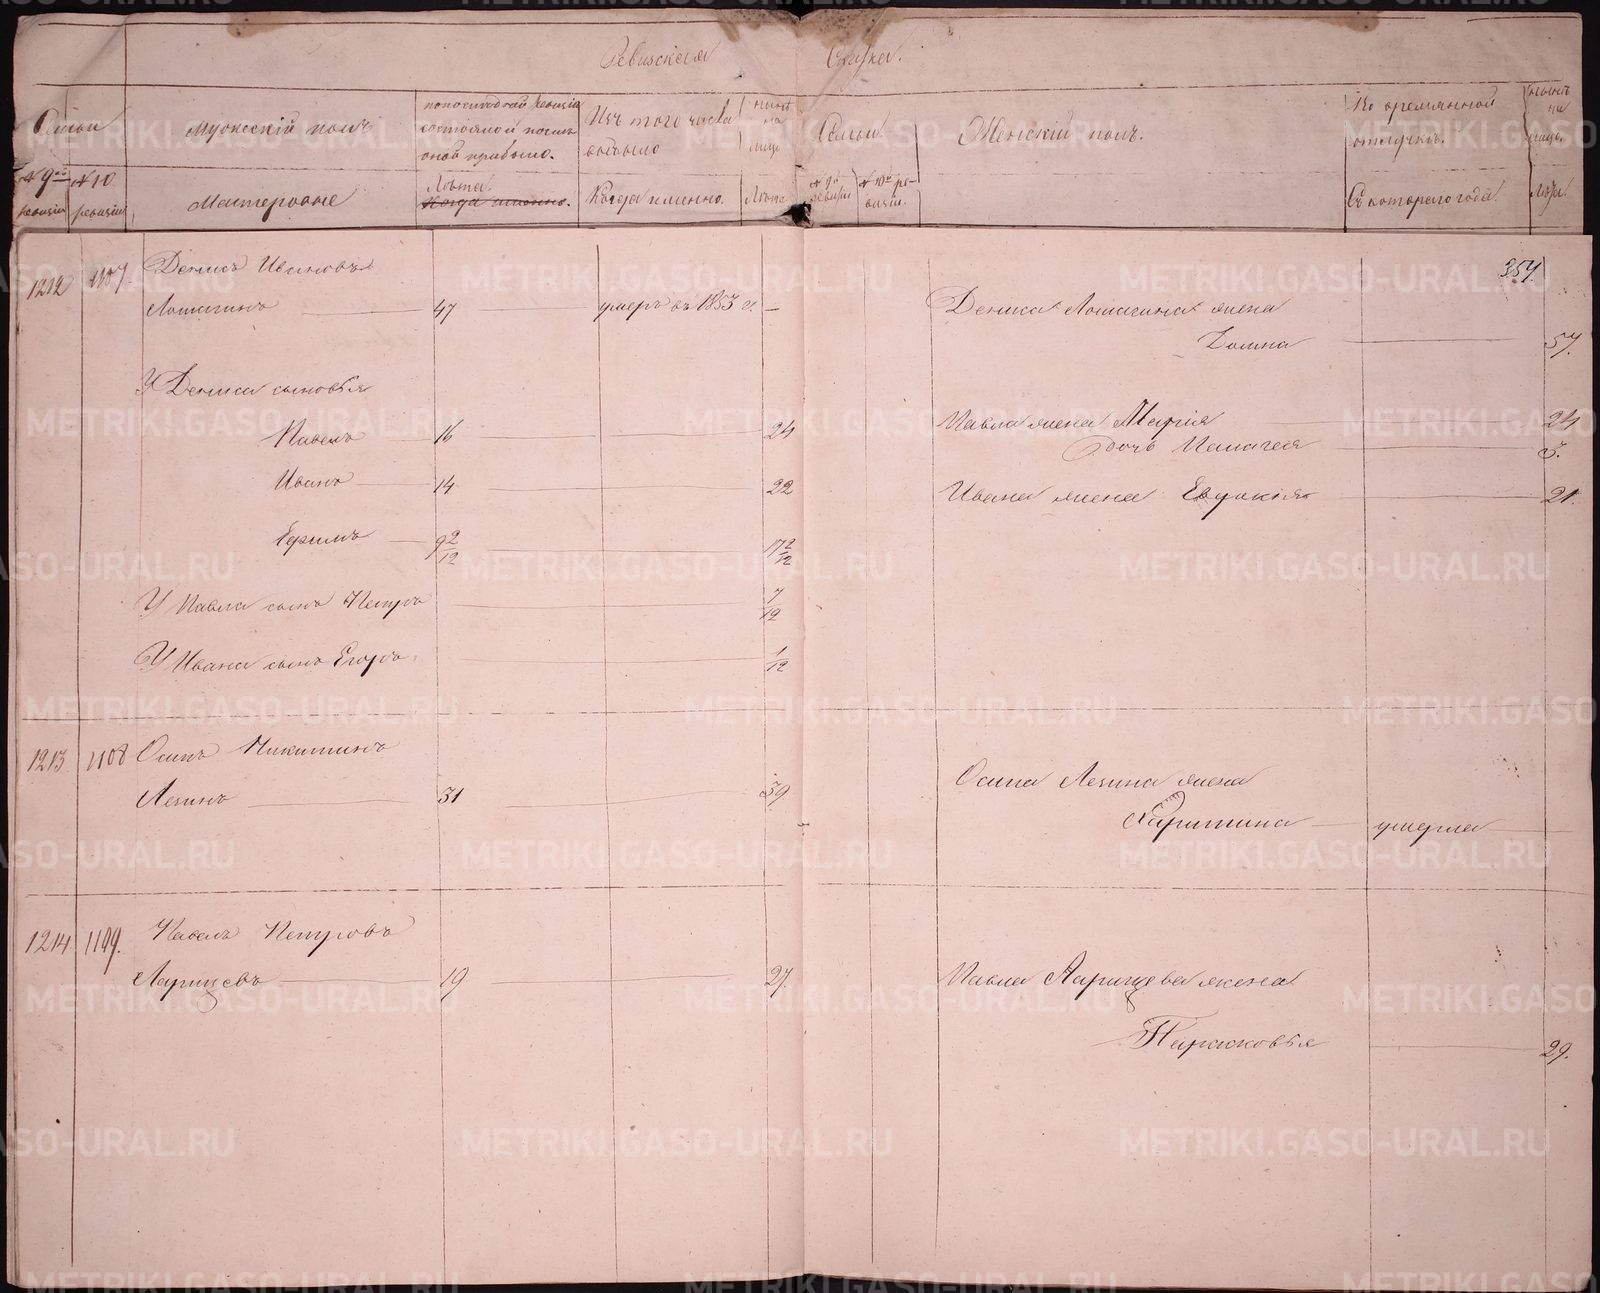 Ревизская Сказка.
Семьи
Мужескій полъ
по последней ревизіи состояло и после оной прибыло.
Изъ того числа выбыло
ныне на лицо
Семьи
Женскій полъ.
Во временной отлучкѣ.
нынѣ на лицо.
№ 9ой ревизіи
№ 10 ревизіи
Мастеровые
Лѣта.
Когда именно.
Когда именно.
Лѣта
№ 9й ревизіи
№ 10й ревизіи.
Съ котораго года.
Лѣта.
357.
1212 1107. Денисъ Ивановъ
Лошагинъ 47 умеръ въ 1853 г. —
Дениса Лошагина жена
Домна 57.
У Дениса сыновья
Павелъ 16 24
Павла жена Марія 24
дочь Пелагея 3.
Иванъ 14 22
Ивана жена Евдокія 21.
Ефимъ 9 2/12 17 2/12
У Павла сынъ Петръ 7/12
У Ивана сынъ Егоръ 1/12
1213 1108 Осипъ Никитинъ
Лезинъ 31 39
Осипа Лезина жена
Харитина умерла
1214 1109. Павелъ Петровъ
Ларищевъ 19 27.
Павла Ларищева жена
Парасковья 29.
METRIKI.GASO-URAL.RU